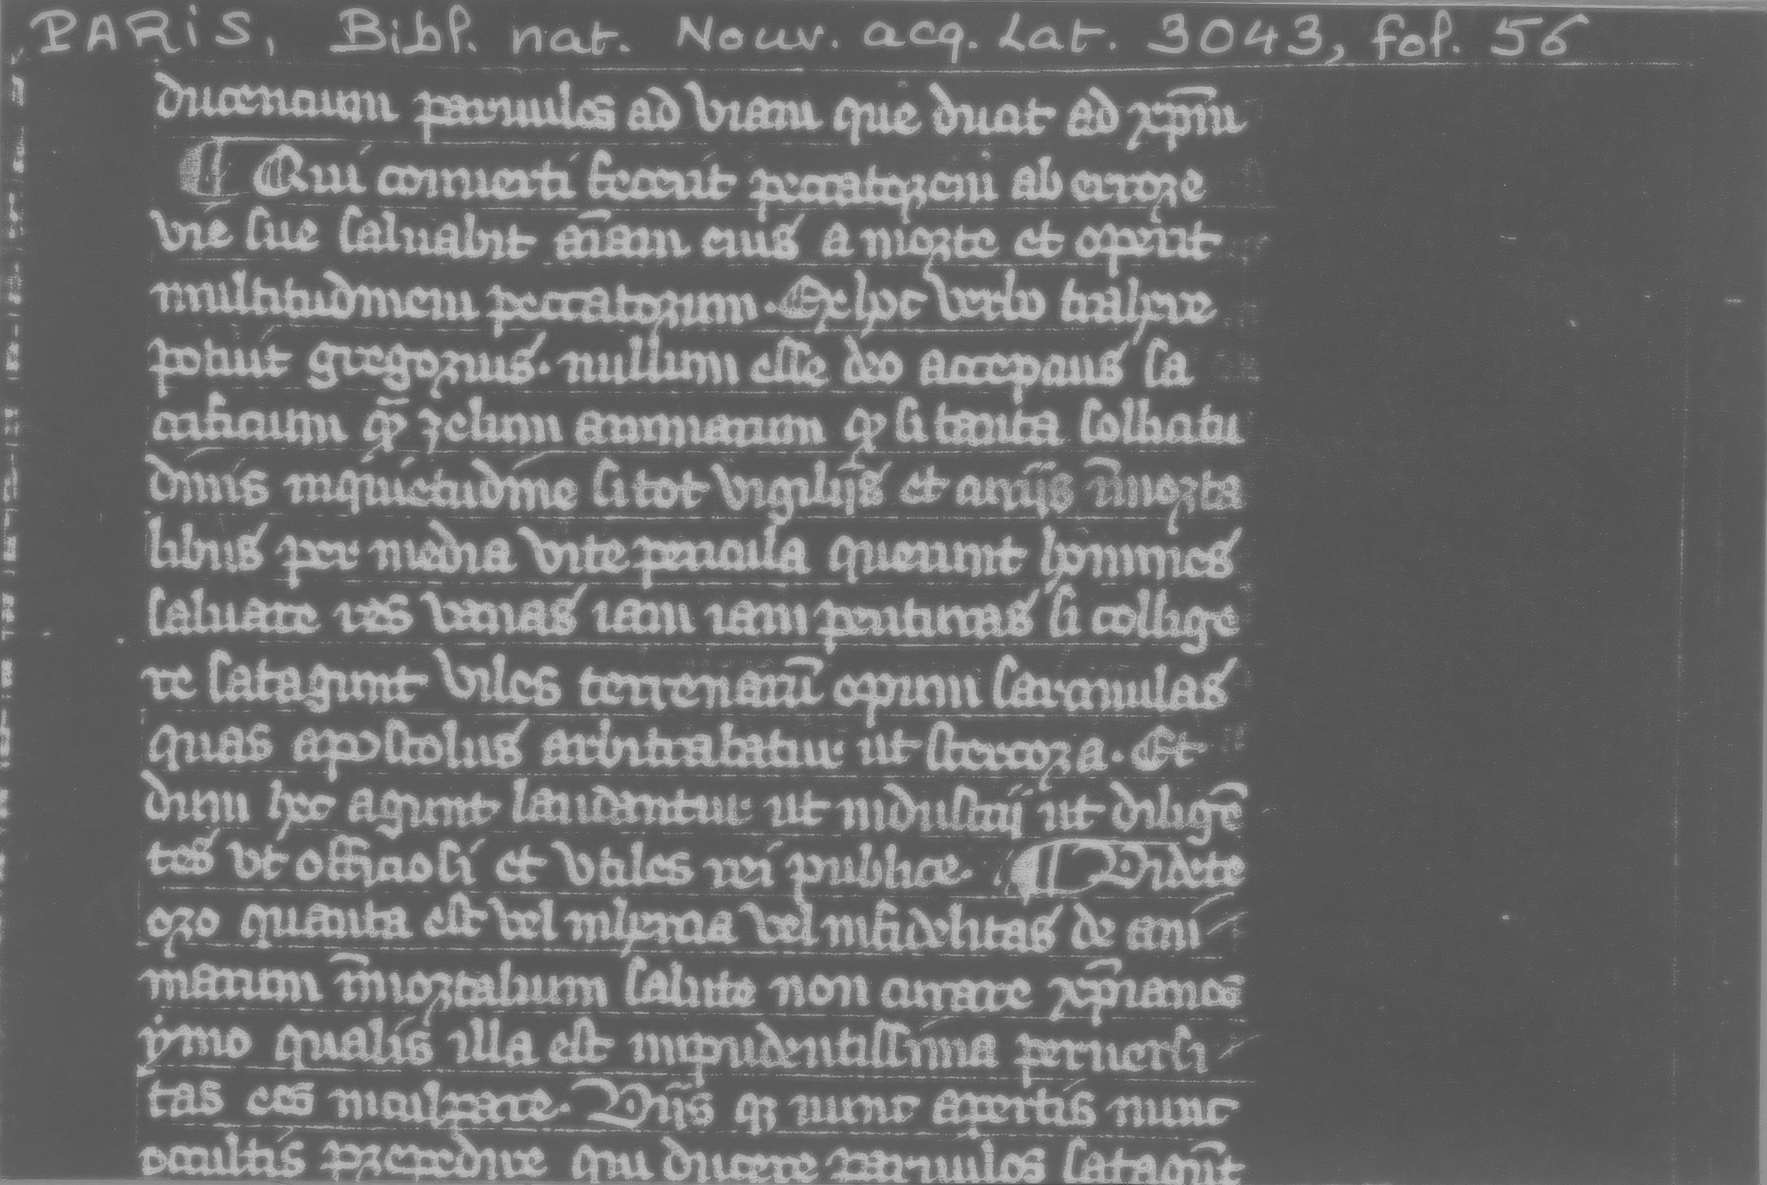 PARIS, Bibl. nat. Nouv. acq. Lat. 3043, fol. 56
ducentium paruulos ad viam que ducit ad xp̄m
¶ Qui conuerti fecerit peccatorem ab errore
vie sue saluabit āīam eius a morte et operit
multitudinem peccatorum. Ex hoc verbo trahere
potuit gregorius. nullum esse deo acceptius sa
crificium qͣ̄ zelum animarum qͥ si tanta sollicitu
dinis inquietudine si tot vigilijs et curijs īmorta
libus per media vite pericula querunt homines
saluare res vanas iam iam perituras si collige
re satagunt viles terrenarū opum sarcinulas
quas apostolus arbitrabatur ut stercora. Et
dum hec agunt laudantur ut industrij ut diligē
tes vt officiosi et vtiles rei publice. ¶ Videte
oro quanta est vel inhercia vel infidelitas de ani
marum īmortalium salute non curare xp̄ianos
ymo qualis illa est impudentissima peruersi
tas eos inculpare. Viis qꝫ nunc apertis nunc
occultis prepedire qui ducere paruulos satagūt